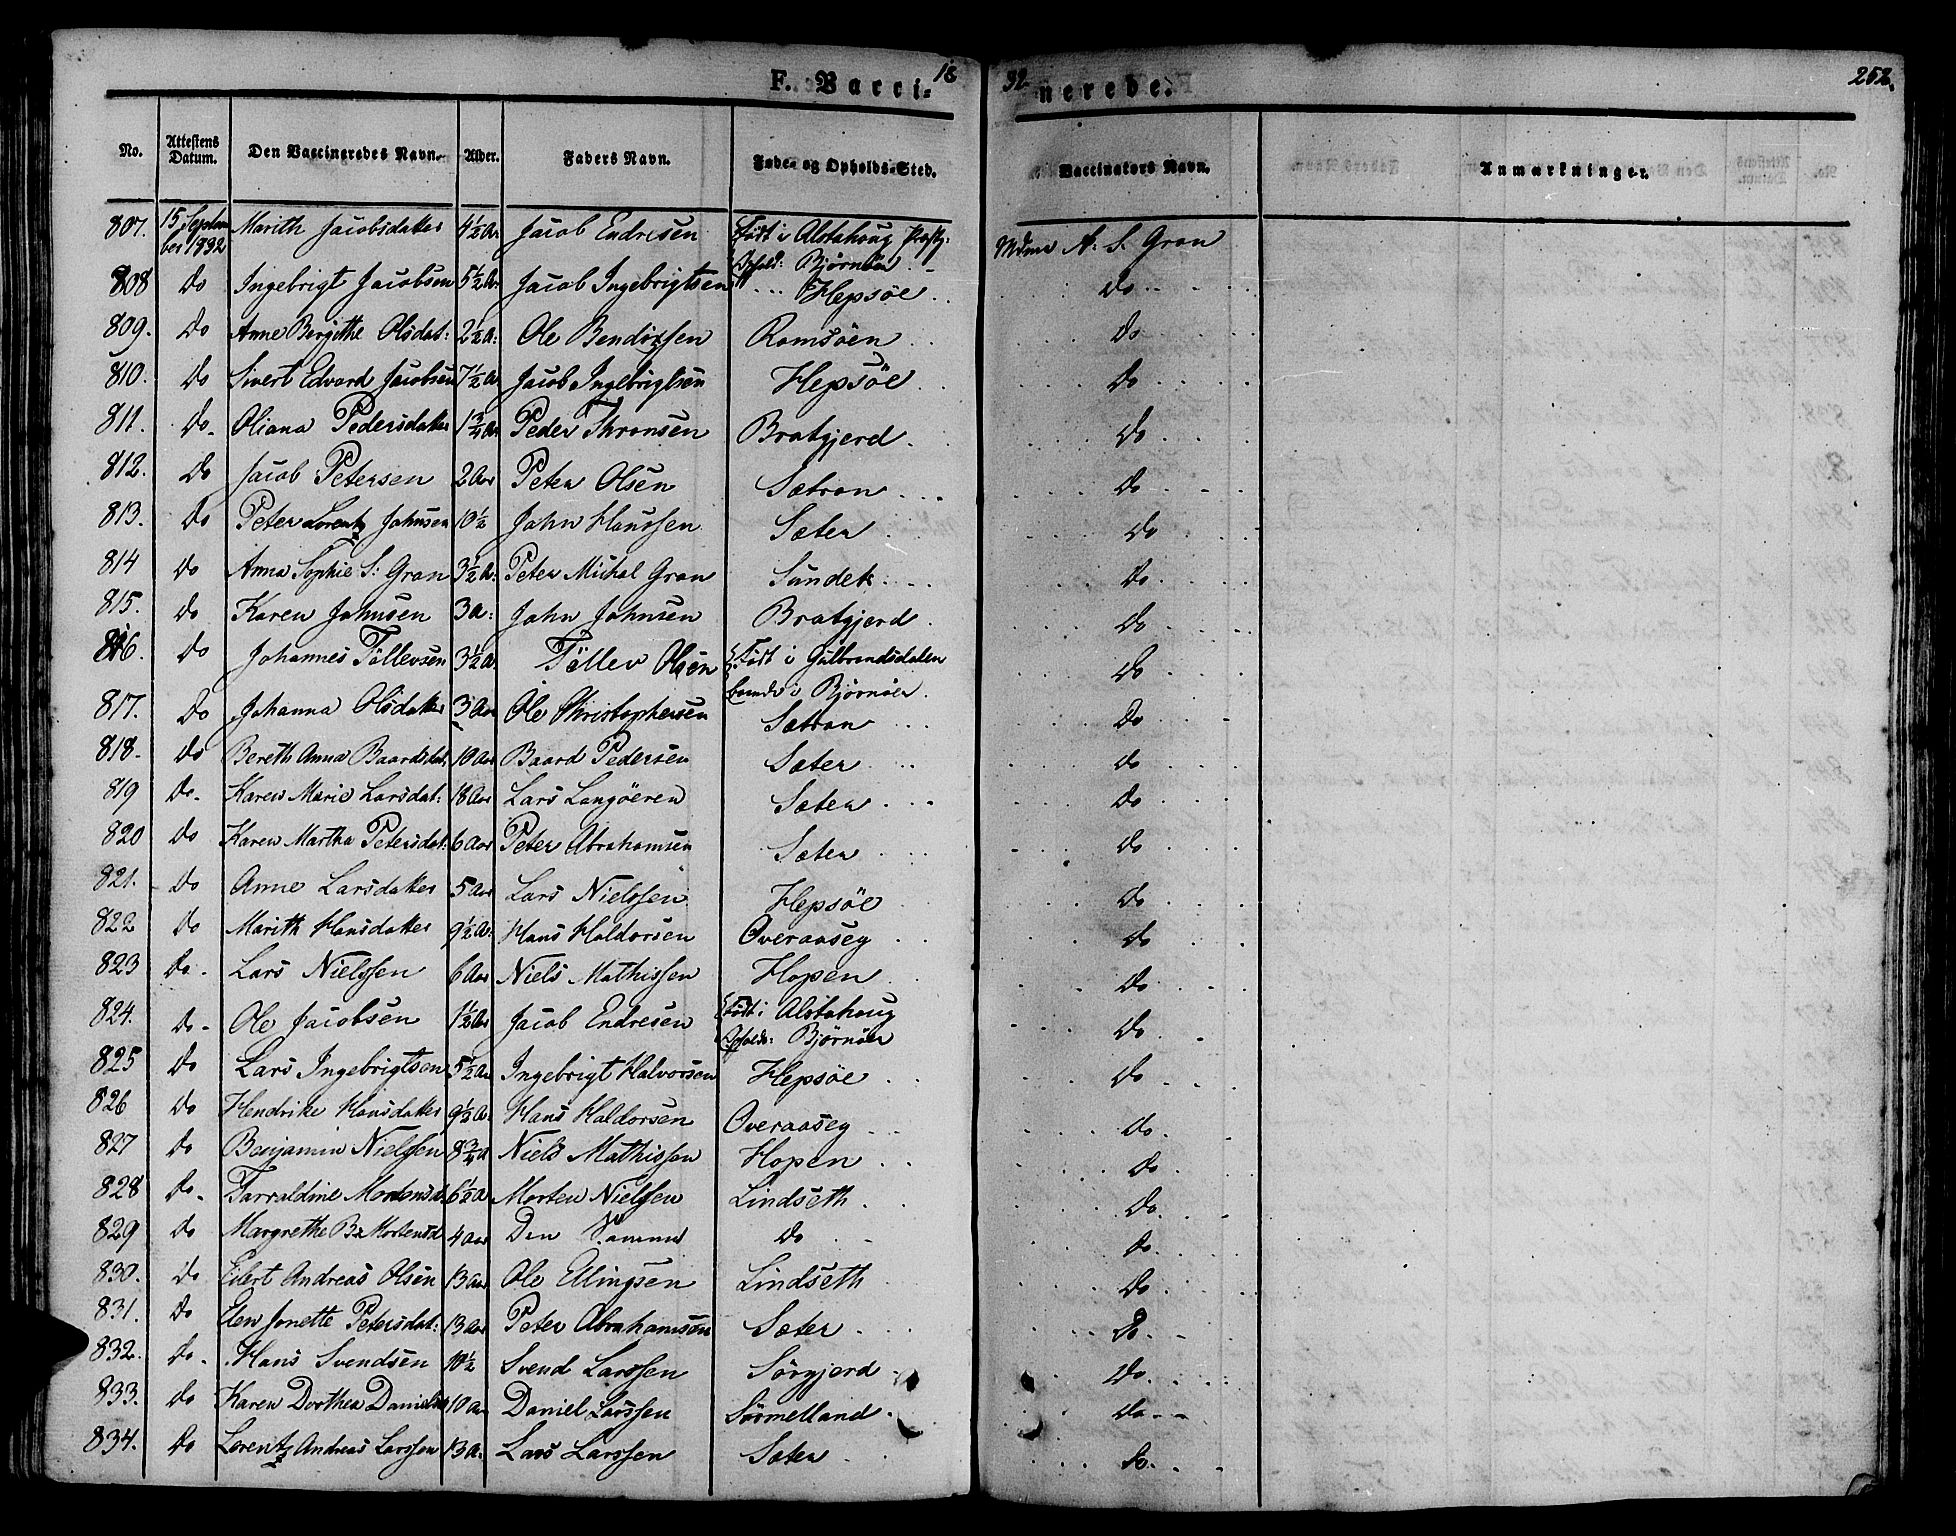 F. Vacci- 18 32 nerede. 252.
No. Attestens Datum. Den Vaccineredes Navn. Alder. Faders Navn. Føde- og Opholds-Sted. Vaccinators Navn. Anmærkninger.
807. 15 Septem Marith Jacobsdatter 4½ Aar Jacob Endresen Født i Alstahoug Præstg: Mdme A: S. Gran
ber 1832 Ophold: Bjørnøer
808 Do Ingebrigt Jacobsen 5½ Ar Jacob Ingebrigtsen Hepsöe Do
809. Do Anne Bergithe Olsdat: 2½ A: Ole Bendixsen Ramsöen Do
810. Do Sivert Edvard Jacobsen 7½ A Jacob Ingebrigtsen Hepsöe Do
811. Do Oliana Pedersdatter 1¾ A Peder Thronsen Bratgjerd Do
812. Do Jacob Petersen 2 Aar Peter Olsen Sætran Do
813. Do Peter Lorentz Johnsen 10½ John Hanssen Sæter Do
814 Do Anna Sophie S: Gran 3½ A: Peter Michal Gran Sundet Do
815. Do Karen Johnsen 3 A: John Johnsen Bratgjerd Do
816. Do Johannes Töllevsen 3½ A. Töllev Olsen Født i Gulbrandsdalen Do
boende i Bjørnøer
817. Do Johanna Olsdatter 3 Aar Ole Christophersen Sætran Do
818. Do Bereth Anna Baardsdat 10 Aar Baard Pedersen Sæter Do
819 Do Karen Marie Larsdat: 18 Aar Lars Langöeren Sæter Do
820 Do Karen Martha Petersdat: 6 Aar Peter Abrahamsen Sæter Do
821. Do Anne Larsdatter 5 Aar Lars Nielssen Hepsöe Do
822 Do Marith Hansdatter 9½ A: Hans Haldorsen Overaaseg Do
823 Do Lars Nielssen 6 Aar Niels Mathissen Hopen Do
824. Do Ole Jacobsen 1½ Aar Jacob Endresen Født i Alstahoug Do
Opholds: Bjørnøer
825 Do Lars Ingebrigtsen 5½ A Ingebrigt Halvorsen Hepsöe Do
826 Do Hendrike Hansdatter 9½ A Hans Haldorsen Overaaseg Do
827 Do Benjamin Nielssen 8¾ A Niels Mathissen Hopen Do
828 Do Tarraldine Mortensd 6½ A Morten Nielssen Lindseth Do
829 Do Margrethe B: Mortensd 4 Aar Den Samme Do Do
830. Do Eilert Andreas Olsen 13 Aar Ole Ellingsen Lindseth Do
831. Do Elen Jonette Petersdat: 13 Aar Peter Abrahamsen Sæter Do
832. Do Hans Svendsen 10½ Svend Larssen Sörgjerd Do
833. Do Karen Dorthea 10 Aar Daniel Larssen Sörmelland Do
834. Do Lorentz Andreas Larssen 13 A: Lars Larssen Sæter Do